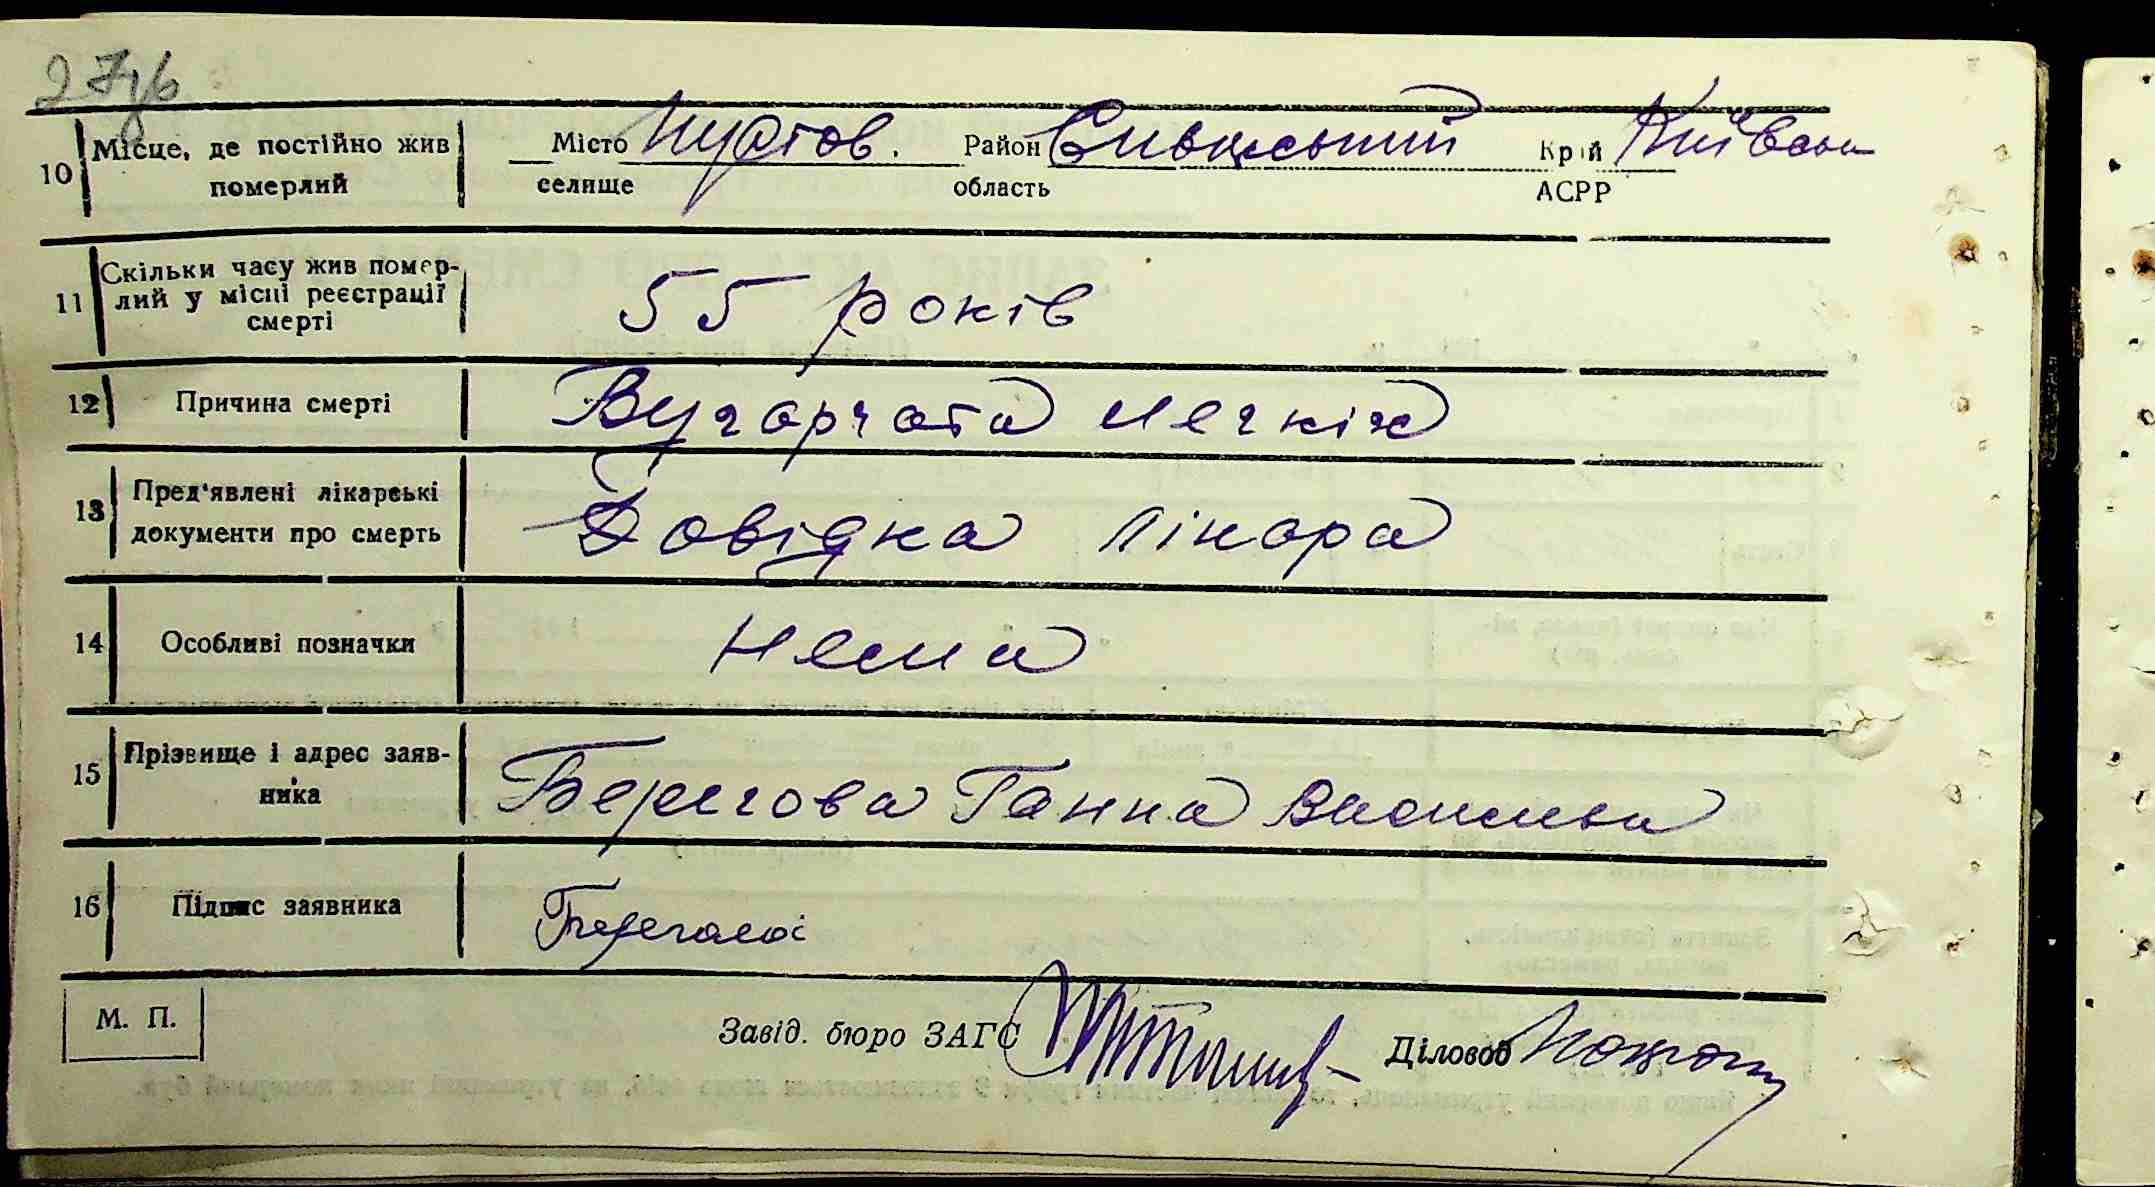 27уб
10 Місце, де постійно жив Місто Пустов. Район Сквирський Край Київськ
померлий селище область АСРР
11 Скільки часу жив помер-
лий у місці реєстрації 55 років
смерті
12 Причина смерті Бугорчата легкіх
13 Пред'явлені лікарські
документи про смерть Довідка лікара
14 Особливі позначки Нема
15 Прізвище і адрес заяв-
ника Берегова Ганна Василева
16 Підпис заявника Берегова
М. П. Завід. бюро ЗАГС Діловод